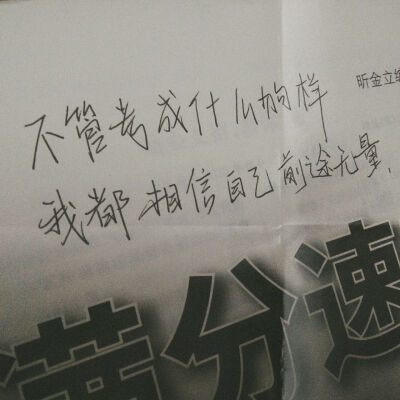 不管考成什么的样
昕金立编
我都相信自己前途无量.
满分速